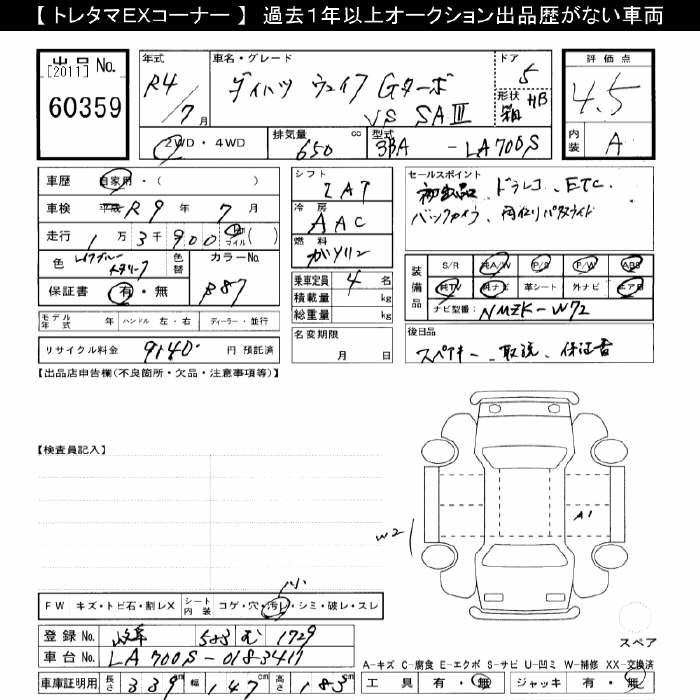 【 トレタマEXコーナー 】 過去１年以上オークション出品歴がない車両
出品 No.
[2011]
60359
年式
R4/7月
車名・グレード
ダイハツ ウェイク Gターボ
VS SAⅢ
ドア
5
形状
箱 HB
評価点
4.5
内装
A
2WD・4WD
排気量
650 cc
型式
3BA - LA700S
車歴 自家用・( )
車検 平成 R9 年 7 月
走行 1万3千900 Km マイル ( )
色
色替
カラーNo.
B87
保証書 有・無
モデル年式 年 ハンドル 左・右 ディーラー・並行
リサイクル料金 9140 円 預託済
シフト
IAT
冷房
AAC
燃料
ガソリン
乗車定員 4 名
積載量 kg
総重量 kg
名変期限
月 日
セールスポイント
初出品、ドラレコ、ETC、
装備品
S/R 純A/W P/S P/W ABS
純TV 純ナビ 革シート 外ナビ エアB
ナビ型番: NMZK-W72
後日品
スペアキー、取説、保証書
【出品店申告欄(不良箇所・欠品・注意事項等)】
【検査員記入】
A1
W2
小
FW キズ・トビ石・割レX
シート内装 コゲ・穴・汚レ・シミ・破レ・スレ
スペア
登録 No. 岐阜 583 む 1729
車台 No. LA700S-0183411
車庫証明用 長さ 339 cm 幅 147 cm 高さ 183 cm
A-キズ C-腐食 E-エクボ S-サビ U-凹ミ W-補修 XX-交換済
工具 有・無 ジャッキ 有・無